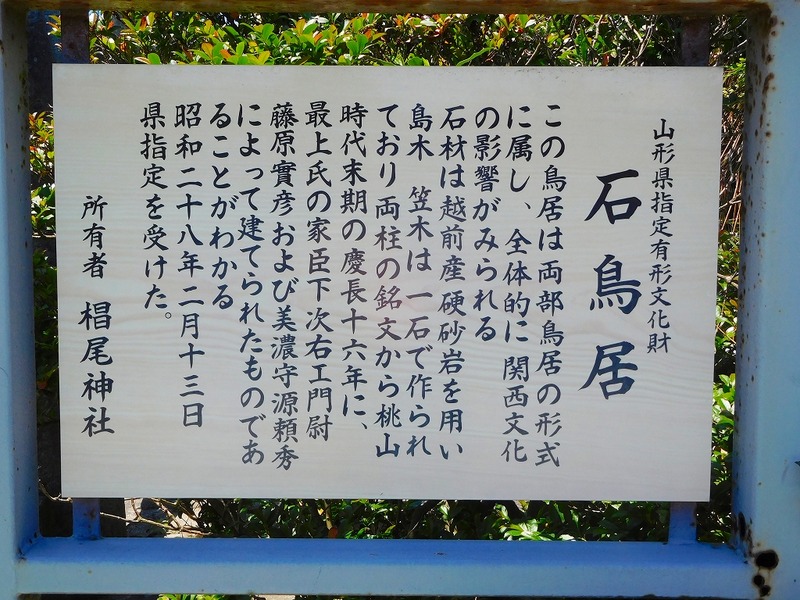 山形県指定有形文化財
石鳥居
この鳥居は両部鳥居の形式
に属し、全体的に関西文化
の影響がみられる
石材は越前産硬砂岩を用い
島木 笠木は一石で作られ
ており両柱の銘文から桃山
時代末期の慶長十六年に、
最上氏の家臣下次右エ門尉
藤原實彦および美濃守源頼秀
によって建てられたものであ
ることがわかる
昭和二十八年二月十三日
県指定を受けた。
所有者 椙尾神社